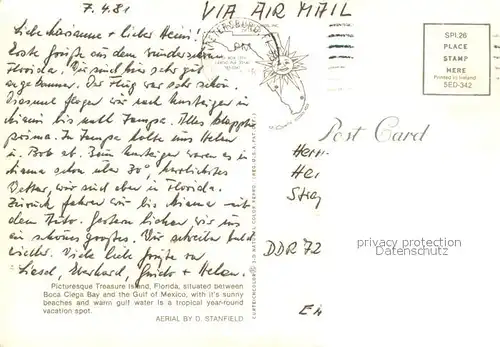 7.4.81
VIA AIR MAIL
Liebe Marianne + lieber Heini!
Erste Grüße aus dem wunderschönen
Florida. Wir sind hier sehr gut
angekommen. Der Flug war sehr schön.
Diesmal flogen wir nach Umsteigen in
Miami bis nach Tampa. Alles klappte
prima. In Tampa holte uns Helen
u. Bob ab. Beim Umsteigen waren es in
Miami schon über 30°, herrlichstes
Wetter, wir sind eben in Florida.
Zurück fahren wir bis Miami mit
dem Auto. Gestern liehen wir uns
ein schönes großes. Wir schreiben bald
wieder. Viele liebe Grüße von
Liesel, Eberhard, Guido + Helen.
PETERSBURG
PM
SPI.26
PLACE
STAMP
HERE
Printed in Ireland
SED-342
Post Card
Herrn
Hei
Straß
DDR 72
privacy protection
Datenschutz
Picturesque Treasure Island, Florida, situated between
Boca Ciega Bay and the Gulf of Mexico, with it's sunny
beaches and warm gulf water is a tropical year-round
vacation spot.
AERIAL BY D. STANFIELD